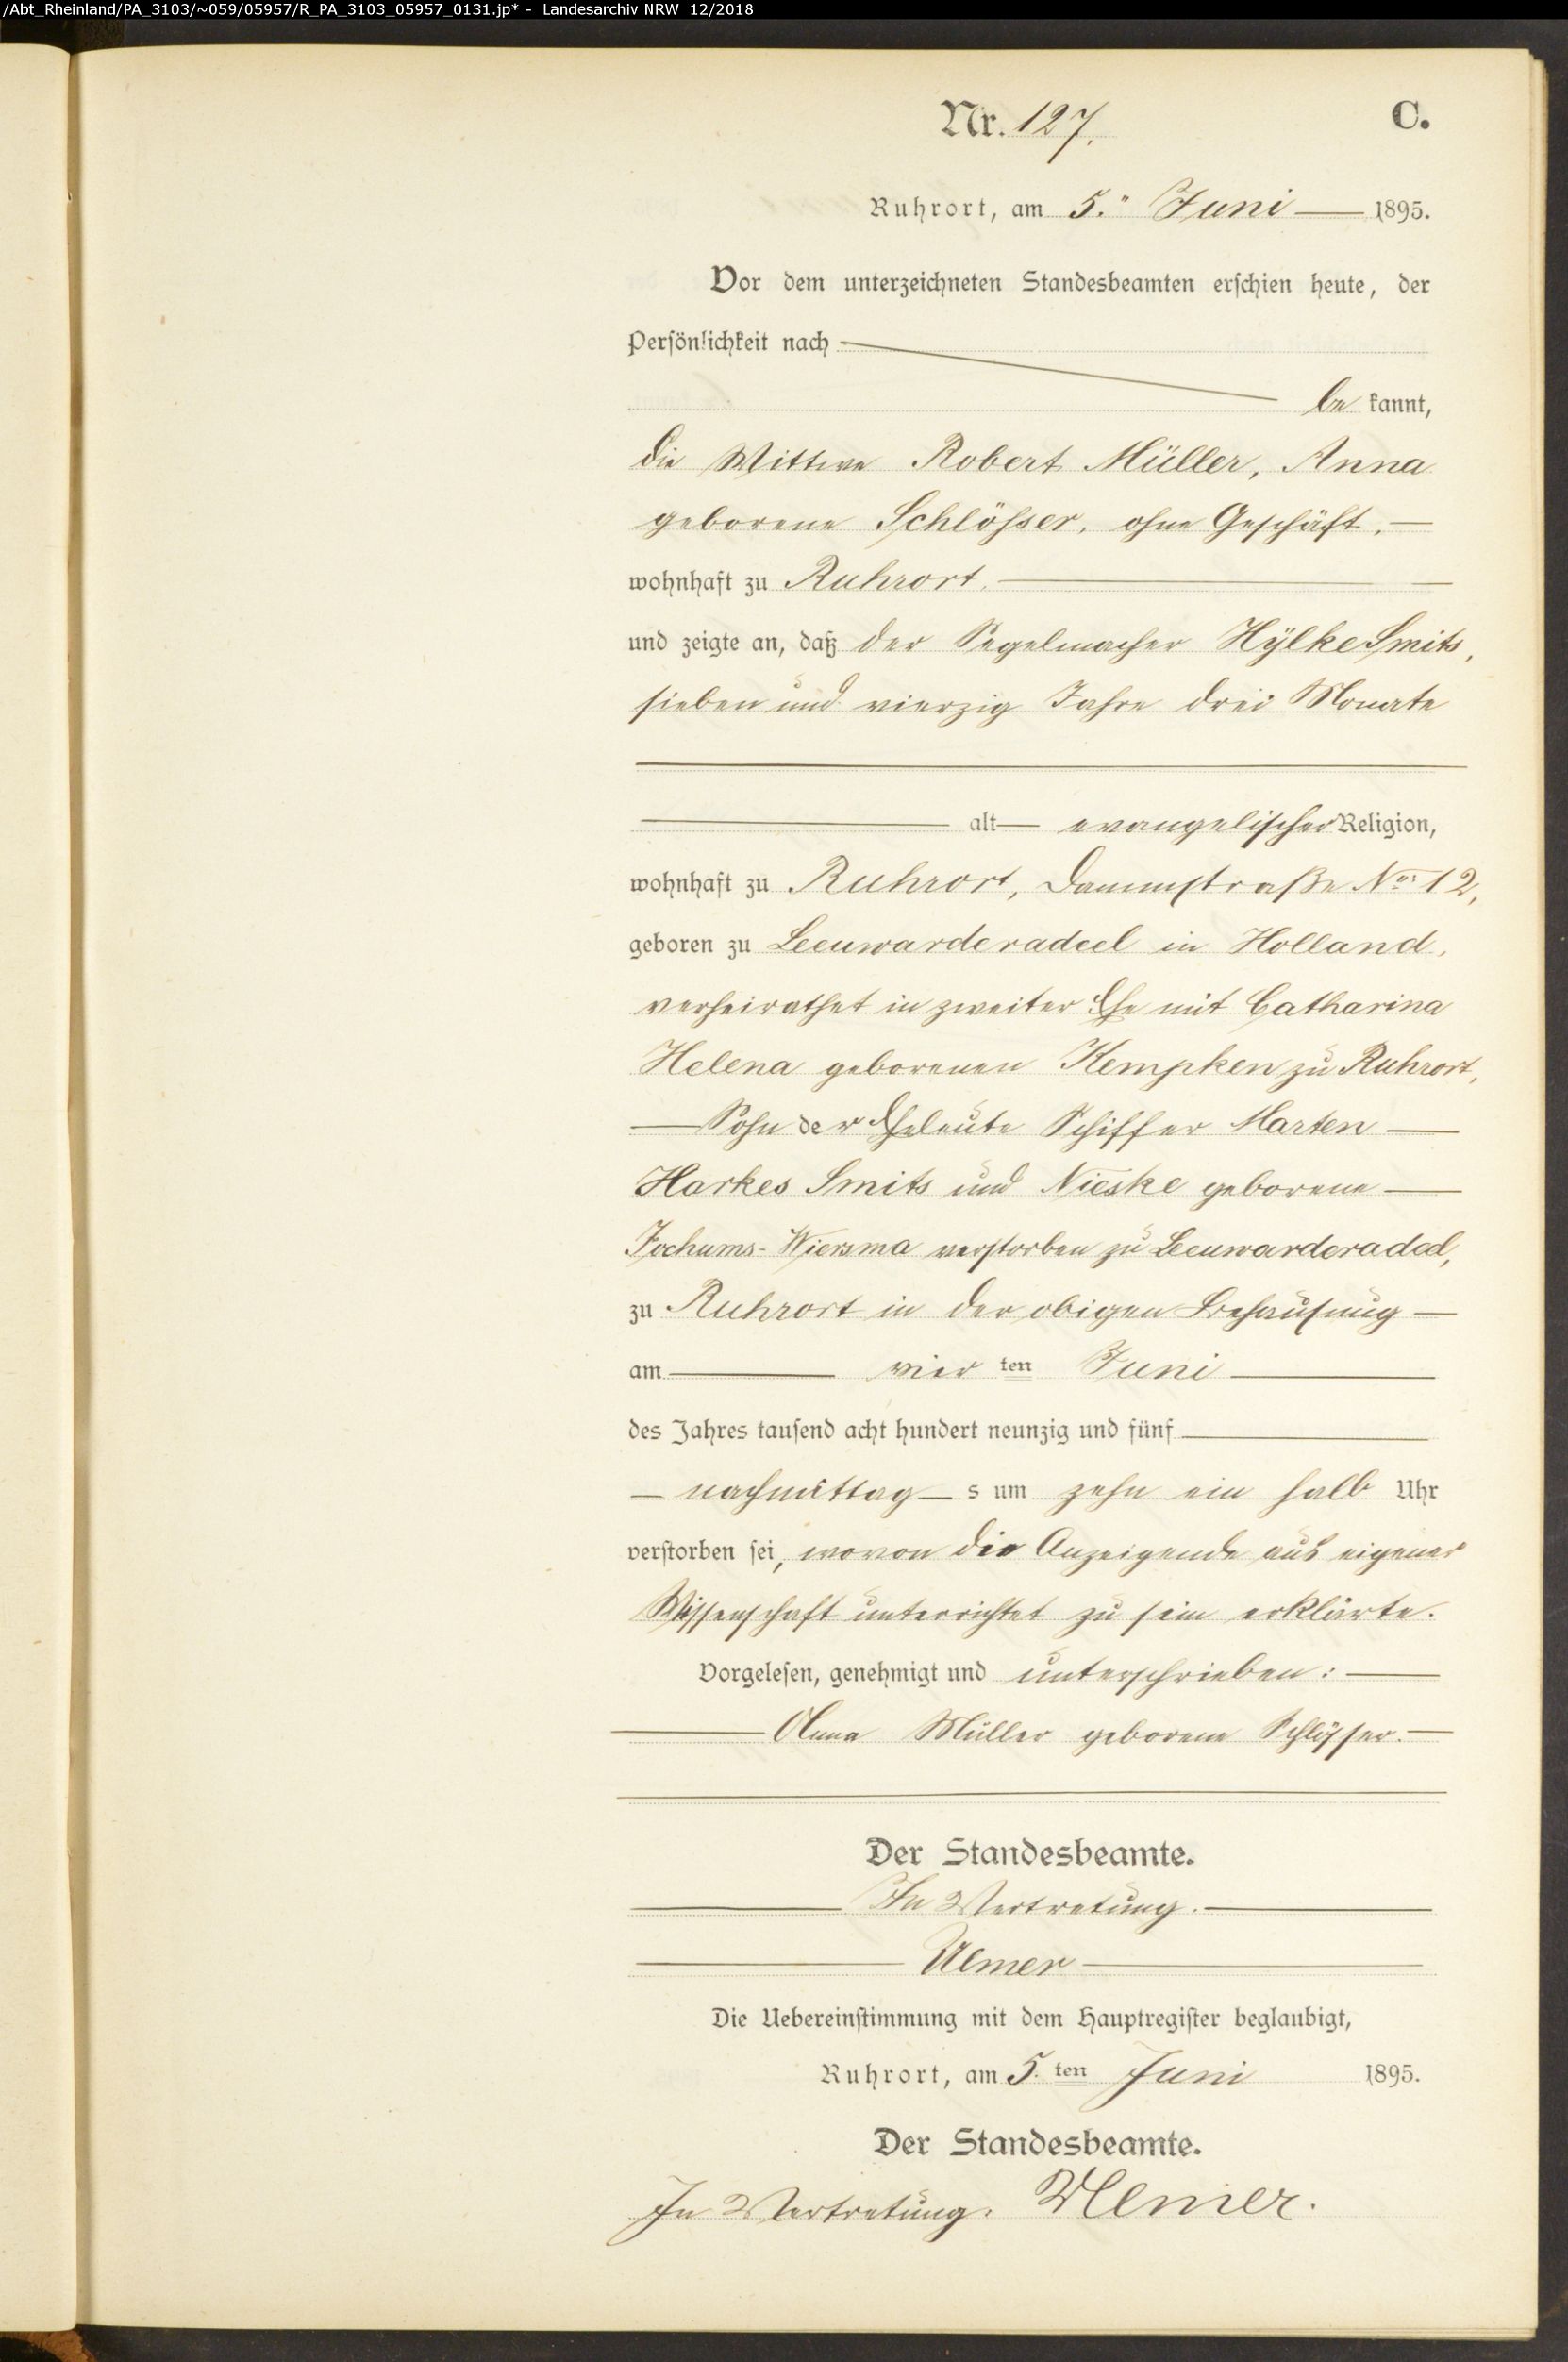 /Abt_Rheinland/PA_3103/~059/05957/R_PA_3103_05957_0131.jp* - Landesarchiv NRW 12/2018
Nr. 127. C.
Ruhrort, am 5. Juni 1895.
Vor dem unterzeichneten Standesbeamten erschien heute, der
Persönlichkeit nach
be kannt,
die Wittwe Robert Müller, Anna
geborene Schlösser, ohne Geschäft,
wohnhaft zu Ruhrort,
und zeigte an, daß der Segelmacher Hÿlke Smits,
sieben und vierzig Jahre drei Monate
alt evangelischer Religion,
wohnhaft zu Ruhrort, Dammstraße No. 12,
geboren zu Leeuwarderadeel in Holland,
verheirathet in zweiter Ehe mit Catharina
Helena geborenen Kempken zu Ruhrort,
Sohn der Eheleute Schiffer Marten
Harkes Smits und Nieske geborene
Jochums-Wiersma verstorben zu Leeuwarderadeel,
zu Ruhrort in der obigen Behausung
am vier ten Juni
des Jahres tausend acht hundert neunzig und fünf
nachmittag s um zehn ein halb Uhr
verstorben sei, wovon die Anzeigende aus eigener
Wissenschaft unterrichtet zu sein erklärte.
Vorgelesen, genehmigt und unterschrieben:
Anna Müller geborene Schlösser.
Der Standesbeamte.
In Vertretung.
Ulmer
Die Uebereinstimmung mit dem Hauptregister beglaubigt,
Ruhrort, am 5. ten Juni 1895.
Der Standesbeamte.
In Vertretung. Ulmer.